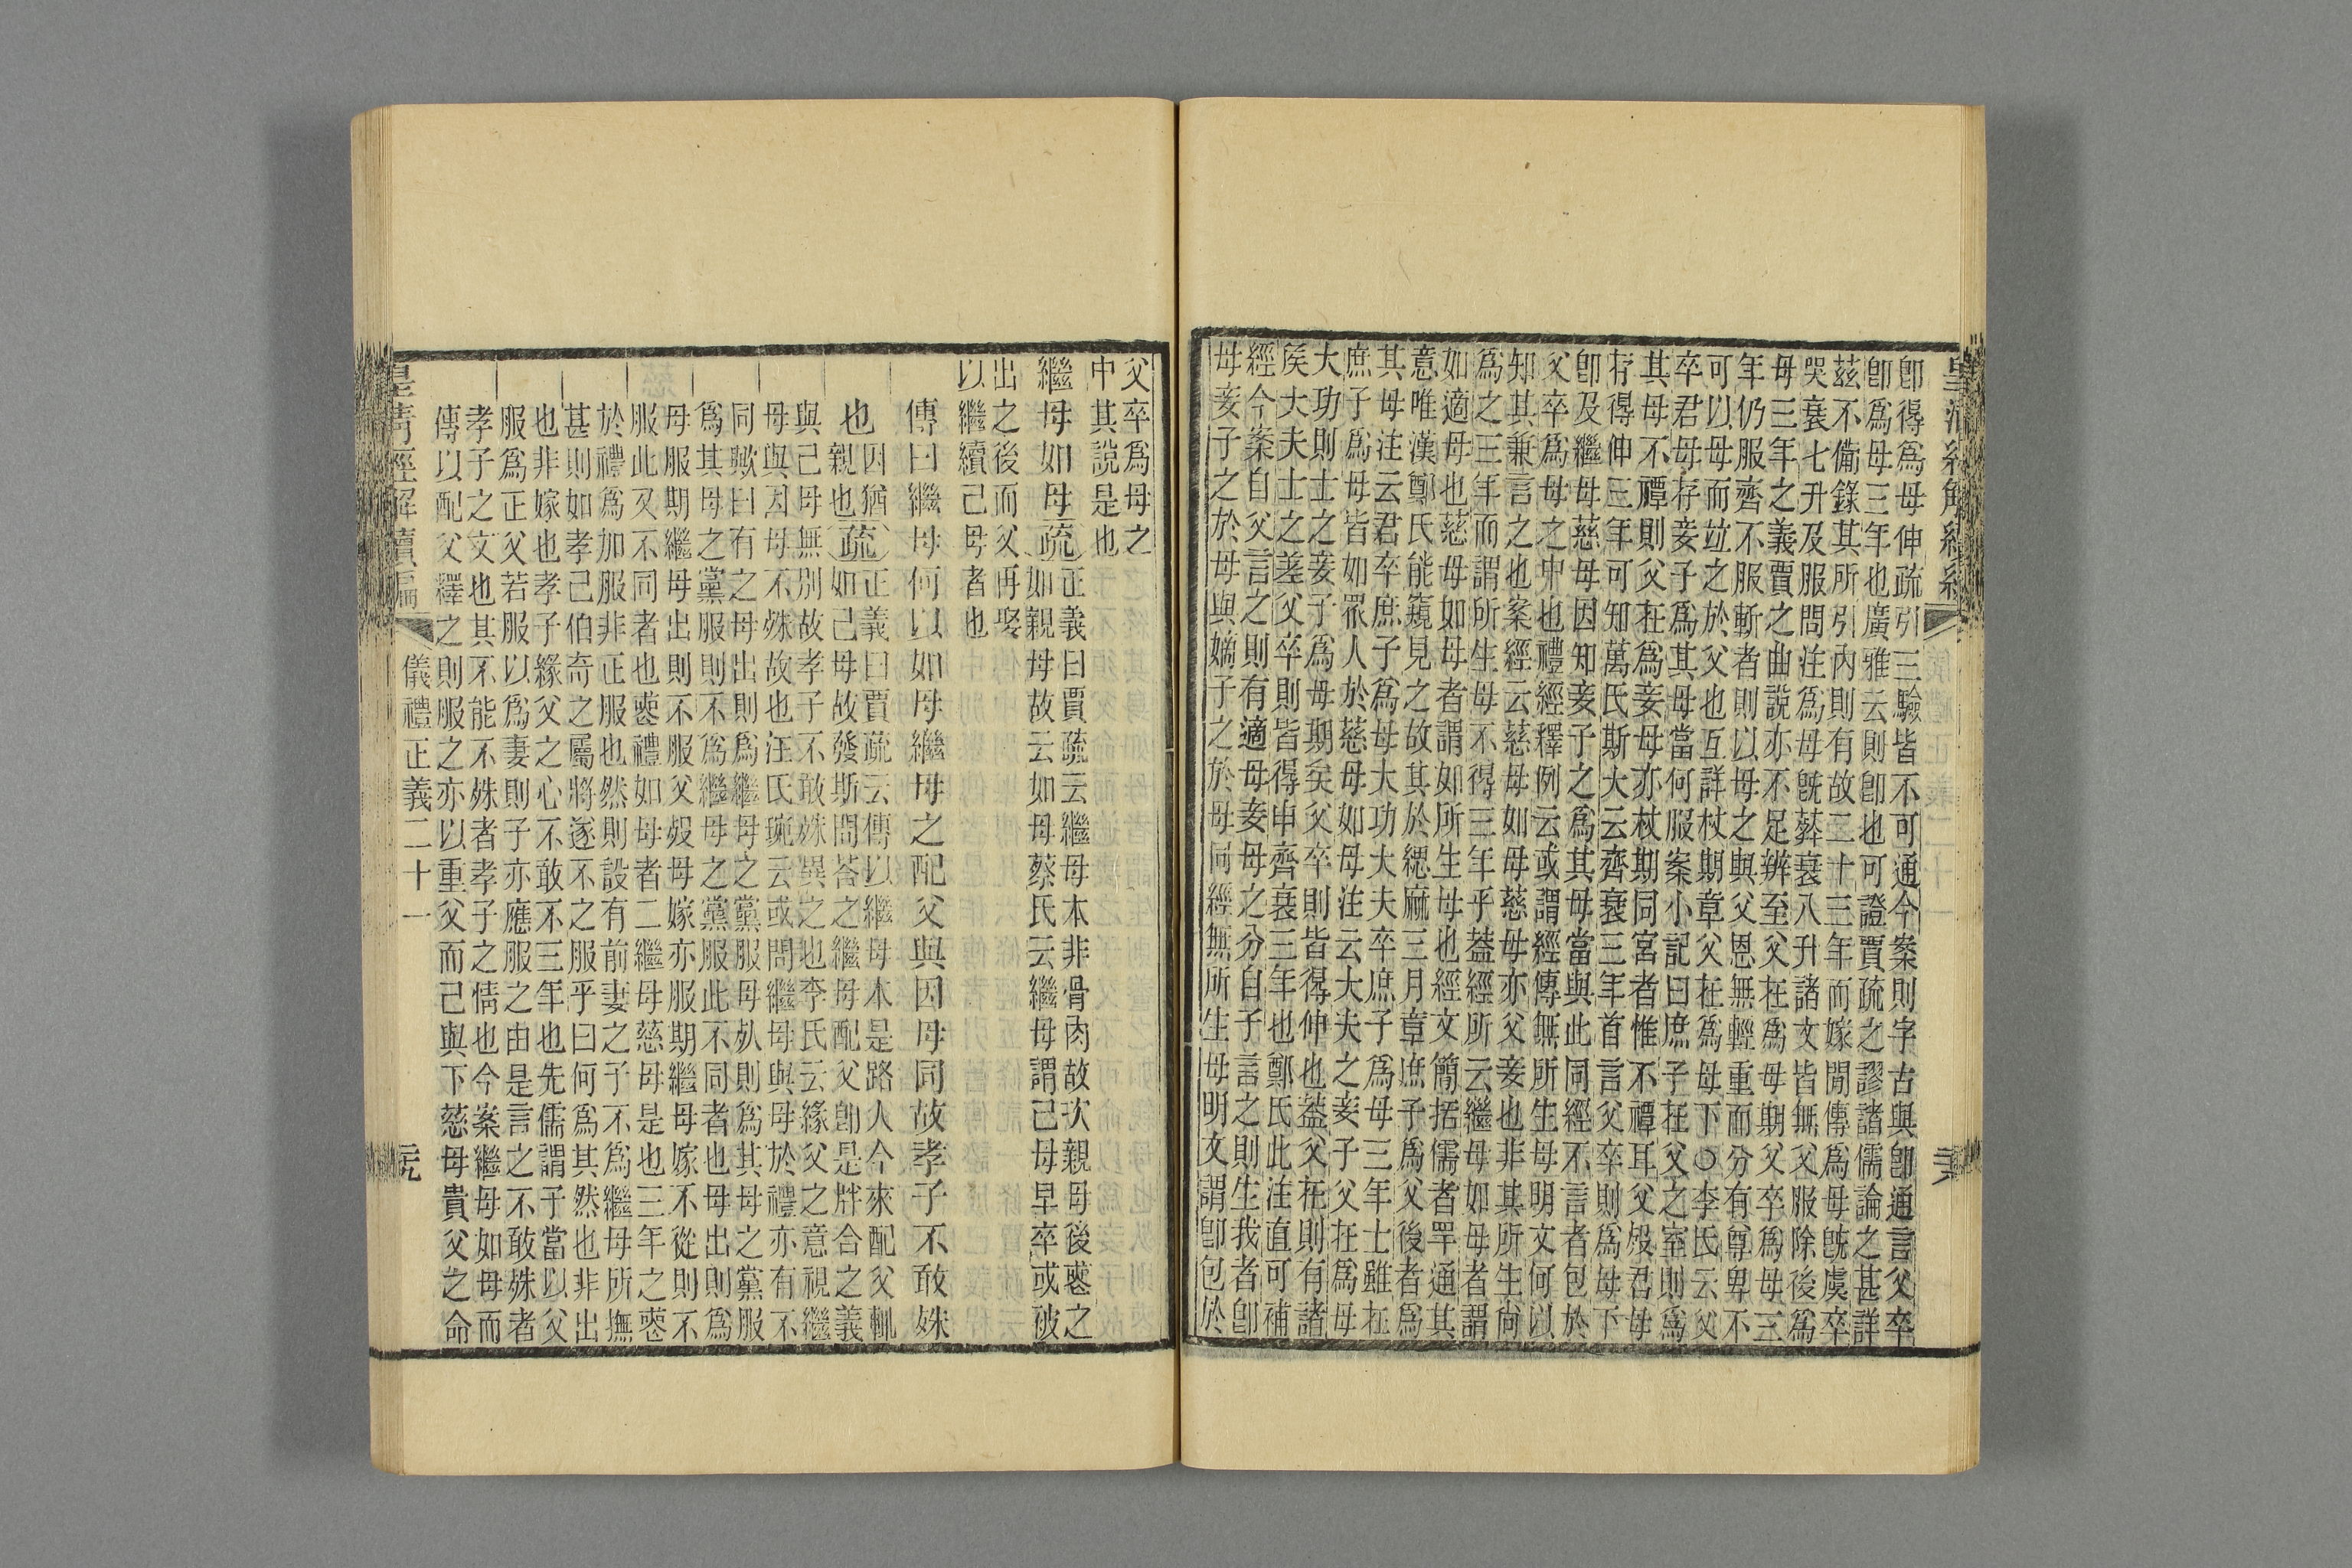 卽得爲母伸疏引三驗皆不可通今案則字古與卽通言父卒
卽爲母三年也廣雅云則卽也可證賈疏之謬諸儒論之甚詳
茲不備錄其所引內則有故二十三年而嫁閒傳爲母旣虞卒
哭衰七升及服問注爲母旣葬衰八升諸文皆無父服除後爲
母三年之義賈之曲說亦不足辨至父在爲母期父卒爲母三
年仍服齊不服斬者則以母之與父恩無輕重而分有尊卑不
可以母而竝之於父也互詳杖期章父在爲母下○李氏云父
卒君母存妾子爲其母當何服案小記曰庶子在父之室則爲
其母不禫則父在爲妾母亦杖期同宮者惟不禫耳父歿君母
存得伸三年可知萬氏斯大云齊衰三年首言父卒則爲母下
卽及繼母慈母因知妾子之爲其母當與此同經不言者包於
父卒爲母之中也禮經釋例云或謂經傳無所生母明文何以
知其兼言之也案經云慈母如母慈母亦父妾也非其所生尙
爲之三年而謂所生母不得三年乎葢經所云繼母如母者謂
如適母也慈母如母者謂如所生母也經文簡括儒者罕通其
意唯漢鄭氏能窺見之故其於緦麻三月章庶子爲父後者爲
其母注云君卒庶子爲母大功大夫卒庶子爲母三年士雖在
庶子爲母皆如眾人於慈母如母注云大夫之妾子父在爲母
大功則士之妾子爲母期矣父卒則皆得伸也葢父在則有諸
矦大夫士之差父卒則皆得申齊衰三年也鄭氏此注直可補
經今案自父言之則有適母妾母之分自子言之則生我者卽
母妾子之於母與嫡子之於母同經無所生母明文謂卽包於
父卒爲母之
中其說是也
繼母如母疏正義曰賈疏云繼母本非骨肉故次親母後蔥之
如親母故云如母蔡氏云繼母謂己母早卒或被
出之後而父再娶
以繼續己母者也
傳曰繼母何以如母繼母之配父與因母同故孝子不敢姝
也因猶親也疏正義曰賈疏云傳以繼母本是路人今來配父輒
如己母故發斯問荅之繼母配父卽是牉合之義
與己母無別故孝子不敢姝異之也李氏云緣父之意視繼
母與因母不姝故也汪氏琬云或問繼母與母於禮亦有不
同歟曰有之母出則爲繼母之黨服母死則爲其母之黨服
爲其母之黨服則不爲繼母之黨服此不同者也母出則爲
母服期繼母出則不服父歿母嫁亦服期繼母嫁不從則不
服此又不同者也䘮禮如母者二繼母慈母是也三年之䘮
於禮爲加服非正服也然則設有前妻之子不爲繼母所撫
甚則如孝己伯奇之屬將遂不之服乎曰何爲其然也非出
也非嫁也孝子緣父之心不敢不三年也先儒謂子當以父
服爲正父若服以爲妻則子亦應服之由是言之不敢姝者
孝子之文也其不能不姝者孝子之情也今案繼母如母而
傳以配父釋之則服之亦以重父而己與下慈母貴父之命
皇清經解續編 儀禮正義二十一